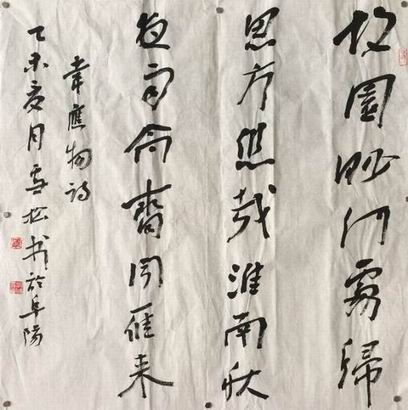 故園眇何處歸
思方悠哉淮南秋
雨夜高齋聞雁来
韋應物詩
乙未夏月雪松书於阜陽